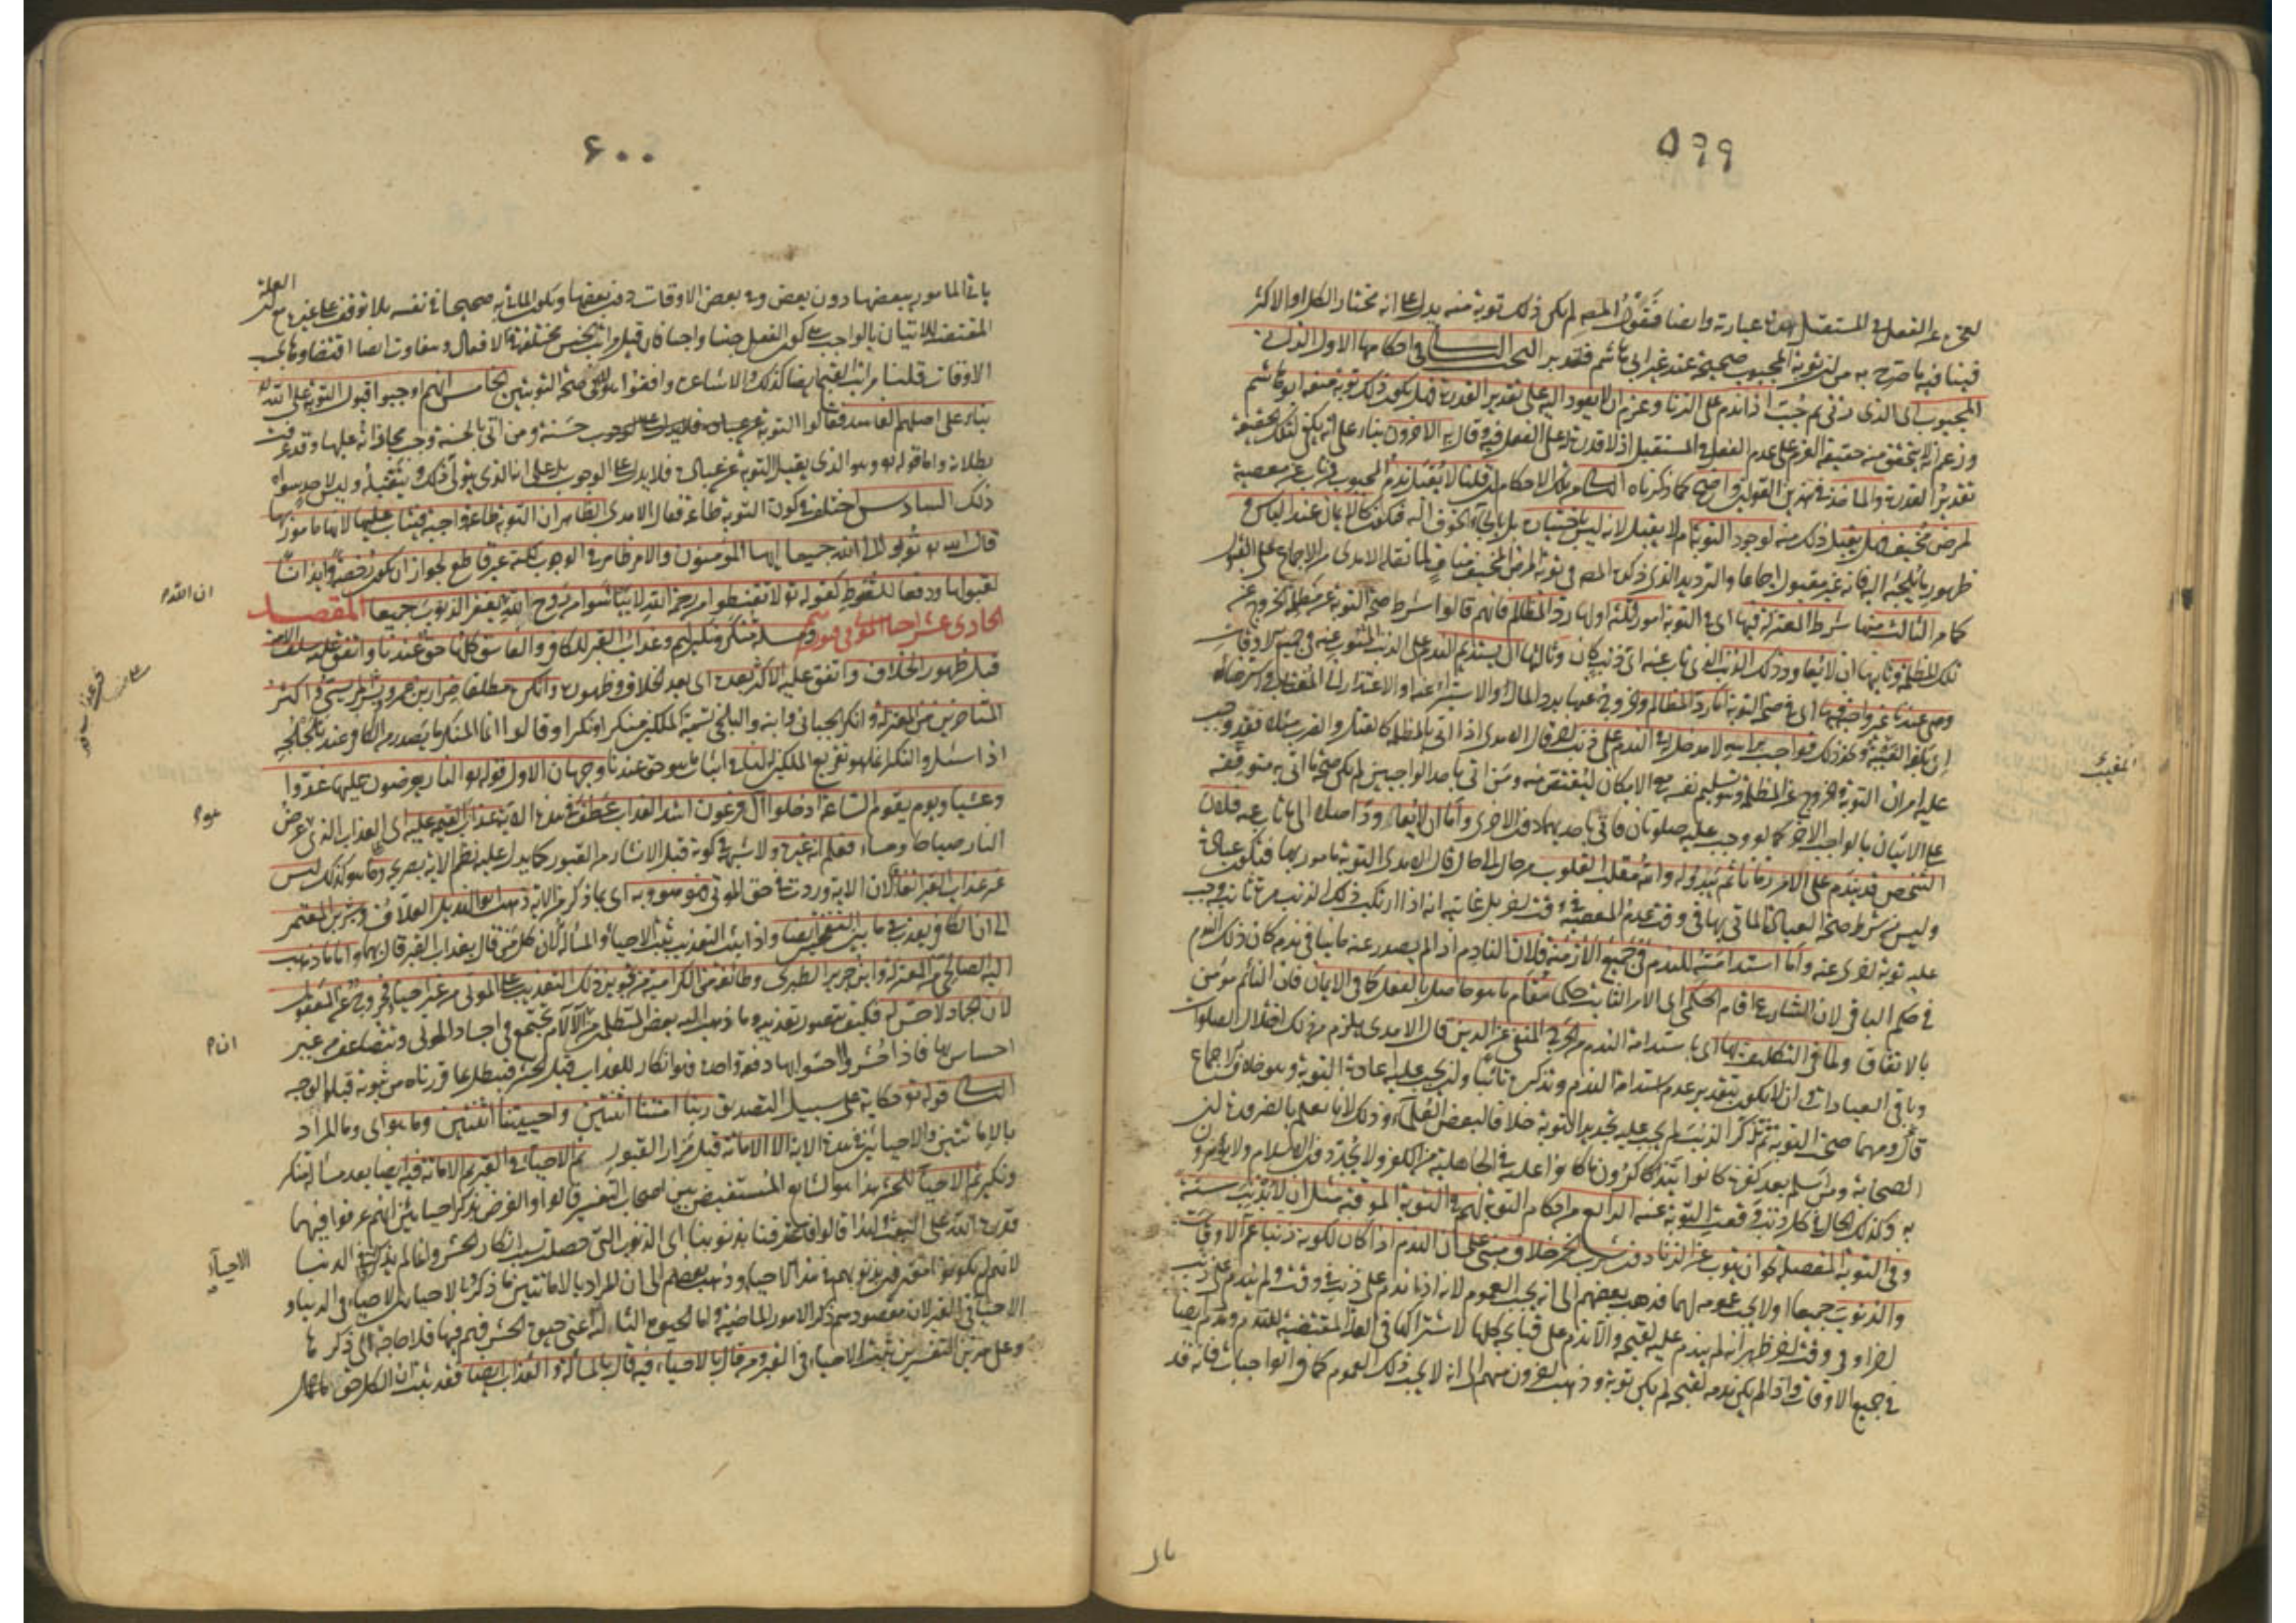 ۵۹۹
فينافيه ما صرح به من ان توبة المجبوب صحيحة عند غير ابى هاشم فتدبر البحث الثانى فى احكامها الاول الزانى
المجبوب اى الذى زنى ثم جُبّ اذا ندم على الزنا وعزم ان لا يعود اليه على تقدير القدرة فهل يكون ذلك توبة منعه ابو هاشم
وزعم انه لا يتحقق منه حقيقة العزم على عدم الفعل فى المستقبل اذ لا قدرة له على الفعل فيه وقال به الآخرون بناء على انه يكفى لتلك الحقيقة
تقدير القدرة والمأخذ فى هذين القولين واضح كما ذكرناه الثانى من تلك الاحكام ان قلنا لا يُقبَل ندم المجبوب فمن تاب عن معصية
لمرض مُخيف فهل يقبل ذلك منه لوجود التوبة ام لا يقبل لانه ليس باختياره بل بالجاء الخوف اليه فيكون كالايمان عند اليأس و
ظهور ما يلجئه اليه فانه غير مقبول اجماعا والترديد الذى ذكره المصـ فى توبة المرض المخيف مناف لما نقله الامدى من الاجماع على القبول
كما مر الثالث منها شرط المعتزلة فيها اى فى التوبة امورا ثلثة اولها رد المظالم فانهم قالوا شرط صحة التوبة عن مظلمة الخروج عن
تلك المظلمة وثانيها ان لا يعاود ذلك الذنب الذى تاب عنه اى ذنب كان وثالثها ان يستديم الندم على الذنب المتوب عنه فى جميع الاوقات
وهى عندنا غير واجبة فيها اى فى صحة التوبة اما رد المظالم والخروج عنها برد المال او الاستبراء عنه او الاعتذار الى المغتاب واسترضائه
ان بلغه الغيبة ونحو ذلك فواجب برأسه لا مدخل له فى الندم على ذنب آخر قال الامدى اذا اتى بالمظلمة كالقتل والضرب مثلا فقد وجب
عليه امران التوبة والخروج عن المظلمة وهو تسليم نفسه مع الامكان ليقتص منه ومن اتى باحد الواجبين لم يكن صحة ما اتى به متوقفة
على الاتيان بالواجب الآخر كما لو وجب عليه صلوتان فاتى باحديهما دون الاخرى واما ان لا يعاود اصلا الى ما تاب عنه فلان
الشخص قد يندم على الامر زمانا ثم يبدو له والله مقلب القلوب من حال الى حال قال الامدى التوبة مأمور بها فتكون عبادة
وليس من شرط صحة العبادة المأتى بها فى وقت عدم المعصية فى وقت آخر بل غايته انه اذا ارتكب ذلك الذنب مرة ثانية وجب
عليه توبة اخرى عنه واما استدامته للندم فى جميع الازمنة فلان النادم اذا لم يصدر عنه ما ينافى ندمه كان ذلك الندم
فى حكم الباقى لان الشارع اقام الحكمى اى الامر الثابت حكما مقام ما هو حاصل بالفعل كما فى الايمان فان النائم مؤمن
بالاتفاق ولما فى التكليف بها اى باستدامة الندم من الحرج المنفى عن الدين قال الامدى يلزم من ذلك اختلال الصلوات
وباقى العبادات وان لا يكون بتقدير عدم استدامة الندم وتذكره تائبا وان يجب عليه اعادة التوبة وهو خلاف الاجماع
قال ومهما صحت التوبة ثم تذكر الذنب لم يجب عليه تجديد التوبة خلافا لبعض العلماء وذلك لانا نعلم بالضرورة ان
الصحابة ومن اسلم بعد كفره كانوا يتذاكرون ما كانوا عليه فى الجاهلية من الكفر ولا يجددون الاسلام ولا يؤمرون
به وكذلك الحال فى كل ذنب وقعت التوبة عنه الرابع من احكام التوبة لهم فى التوبة الموقتة مثل ان لا يذنب سنة
وفى التوبة المفصلة نحو ان يتوب عن الزنا دون شرب الخمر خلاف مبنى على ان الندم اذا كان لكونه ذنبا عم الاوقات
والذنوب جميعا اولا يجب عمومه لهما فذهب بعضهم الى انه يجب العموم لانه اذا ندم على ذنب فى وقت ولم يندم على ذنب
آخر او فى وقت آخر ظهر انه لم يندم عليه لقبحه والا ندم على قبايحه كلها لاشتراكها فى العلة المقتضية للندم وندم ايضا
فى جميع الاوقات واذا لم يكن ندمه لقبحه لم يكن توبة وذهب آخرون منهم الى انه لا يجب ذلك العموم كما فى الواجبات فانه قد
۶۰۰
ياتى المأمور ببعضها دون بعض وفى بعض الاوقات دون بعضها ويكون المأتى به صحيحا فى نفسه بلا توقف على غيره مع ان العلة
المقتضية للاتيان بالواجب هى كون الفعل حسنا واجبا فان قيل مراتب الحسن مختلفة فى الافعال ويتفاوت ايضا اقتضاؤه بحسب
الاوقات قلنا مراتب القبح ايضا كذلك والاشاعرة وافقوا هؤلاء فى صحة التوبتين الخامس انهم اوجبوا قبول التوبة على الله
بناء على اصلهم الفاسد فقالوا التوبة حسنة ومن اتى بالحسنة وجب مجازاته عليها وقد عرفت
بطلانه واما قوله تع وهو الذى يقبل التوبة عن عباده فلا يدل على الوجوب بل على انه الذى يتولى ذلك ويتقبله وليس لاحد سواه
ذلك السادس اختلف فى كون التوبة طاعة فقال الامدى الظاهر ان التوبة طاعة واجبة فيثاب عليها لانها مامور بها
قال الله تع توبوا الى الله جميعا ايها المؤمنون والامر ظاهر فى الوجوب لكنه غير قاطع لجواز ان يكون رخصة وايذانا
لقبولها ودفعا للقنوط كقوله تع لا تقنطوا من رحمة الله لا تيأسوا من روح الله ان الله يغفر الذنوب جميعا المقصد
الحادى عشر احياء الموتى فى قبورهم ومسئلة منكر ونكير لهم وعذاب القبر للكافر والفاسق كلها حق عندنا واتفق عليه سلف الامة
قبل ظهور الخلاف واتفق عليه الاكثر بعده اى بعد الخلاف وظهوره وانكره مطلقا ضرار بن عمرو وبشر المريسى واكثر
المتأخرين من المعتزلة وانكر الجبائى وابنه والبلخى تسمية الملكين منكرا ونكيرا وقالوا انما المنكر ما يصدر من الكافر عند تلجلجه
اذا سئل والنكير انما هو تقريع الملكين له لنا فى اثبات ما هو حق عندنا وجهان الاول قوله تع النار يعرضون عليها غدوا
وعشيا ويوم يقوم الساعة ادخلوا آل فرعون اشد العذاب عطف فى هذه الآية عذاب القيمة عليه اى العذاب الذى هو عرض
النار صباحا ومساء فعلم انه غيره ولا شبهة فى كونه قبل الانشار من القبور كما يدل عليه نظم الآية بصريحه وما هو كذلك ليس
غير عذاب القبر اتفاقا لان الآية وردت فى حق الموتى فهو هو وبه اى بما ذكر من الآية ذهب ابو الهذيل العلاف وبشر بن المعتمر
الى ان الكافر يعذب فى ما بين النفختين ايضا واذا ثبت التعذيب ثبت الاحياء والمسألة لان كل من قال بعذاب القبر قال بهما واما ما ذهب
اليه الصالحى من المعتزلة وابن جرير الطبرى وطائفة من الكرامية من تجويز ذلك التعذيب على الموتى من غير احياء فخروج عن المعقول
لان الجماد لا حس له فكيف يتصور تعذيبه وما ذهب اليه بعض المتكلمين من ان الآلام تجتمع فى اجساد الموتى وتتضاعف من غير
احساس بها فاذا حشروا احسوا بها دفعة واحدة فهو انكار للعذاب قبل الحشر فيبطل بما قررناه من ثبوته قبله الوجه
الثانى قوله تع حكاية على سبيل التصديق ربنا امتنا اثنتين واحييتنا اثنتين وما هو اى وما المراد
بالاماتتين والاحيائين فى هذه الآية الا الاماتة قبل مزار القبور ثم الاحياء فى القبر ثم الاماتة فيه ايضا بعد مسألة منكر
ونكير ثم الاحياء للحشر هذا هو الشايع المستفيض بين اصحاب التفسير قالوا والغرض بذكر الاحيائين انهم عرفوا فيهما
قدرة الله على البعث ولهذا قالوا فاعترفنا بذنوبنا اى الذنوب التى حصلت بسبب انكار الحشر وانما لم يذكر الاحياء فى الدنيا
لانهم لم يكونوا معترفين بذنوبهم فى هذا الاحياء وذهب بعضهم الى ان المراد بالاماتتين ما ذكر وبالاحيائين الاحياء فى الدنيا و
الاحياء فى القبر لان مقصودهم ذكر الامور الماضية واما الحيوة الثالثة اعنى حيوة الحشر فهم فيها فلا حاجة الى ذكرها
وعلى هذين التفسيرين ثبت الاحياء فى القبر ومن قال بالاحياء فيه قال بالمسألة والعذاب ايضا فقد ثبت ان الكل حق
ان الله
الاحياء